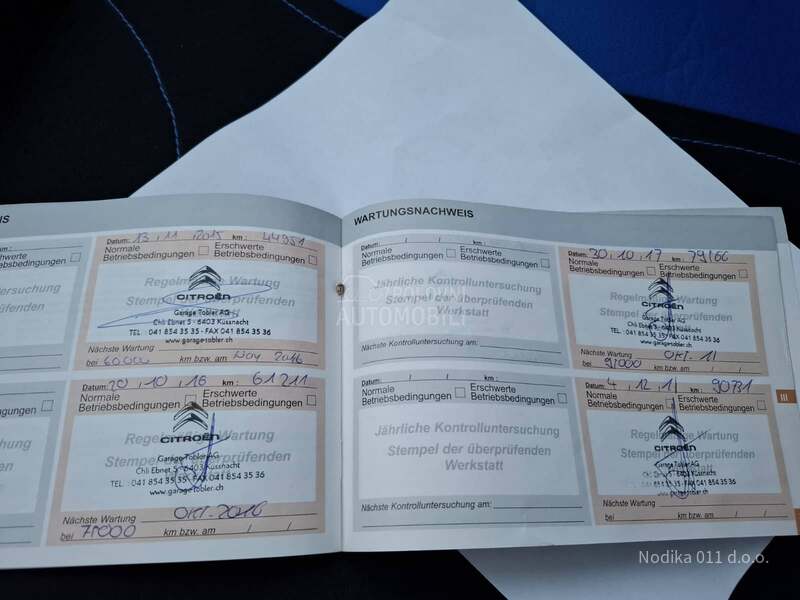 IS
Erschwerte
Betriebsbedingungen
Datum: 13, 11, 2015 km: 44951
Normale
Betriebsbedingungen
Erschwerte
Betriebsbedingungen
Regelmäßige Wartung
Stempel der überprüfenden
CITROËN
Garage Tobler AG
Chli Ebnet 5 - 6403 Küssnacht
TEL.: 041 854 35 35 - FAX 041 854 35 36
www.garage-tobler.ch
Nächste Wartung
bei 60000 km bzw. am Nov 2016
Datum: 20, 10, 16 km: 61211
Normale
Betriebsbedingungen
Erschwerte
Betriebsbedingungen
Wartung
Stempel der überprüfenden
CITROËN
Garage Tobler AG
Chli Ebnet 5 - 6403 Küssnacht
TEL.: 041 854 35 35 - FAX 041 854 35 36
www.garage-tobler.ch
Nächste Wartung
bei km bzw. am / /
WARTUNGSNACHWEIS
Datum: / / km:
Normale
Betriebsbedingungen
Erschwerte
Betriebsbedingungen
Jährliche Kontrolluntersuchung
Stempel der überprüfenden
POLOVNI
AUTOMOBILI
Nächste Kontrolluntersuchung am:
Datum: / / km:
Normale
Betriebsbedingungen
Erschwerte
Betriebsbedingungen
Jährliche Kontrolluntersuchung
Stempel der überprüfenden
Werkstatt
Nächste Kontrolluntersuchung am:
Datum: 30, 10, 17 km: 79166
Normale
Betriebsbedingungen
Erschwerte
Betriebsbedingungen
Wartung
CITROËN
Garage Tobler AG
Chli Ebnet 5 - 6403 Küssnacht
TEL.: 041 854 35 35 - FAX 041 854 35 36
www.garage-tobler.ch
Nächste Wartung
bei km bzw. am
Datum: km: 90731
Normale
Betriebsbedingungen
Erschwerte
Betriebsbedingungen
Wartung
CITROËN
Garage Tobler AG
Chli Ebnet 5 - 6403 Küssnacht
TEL.: 041 854 35 35 - FAX 041 854 35 36
Nächste Wartung
bei km bzw. am / /
III
Nodika 011 d.o.o.